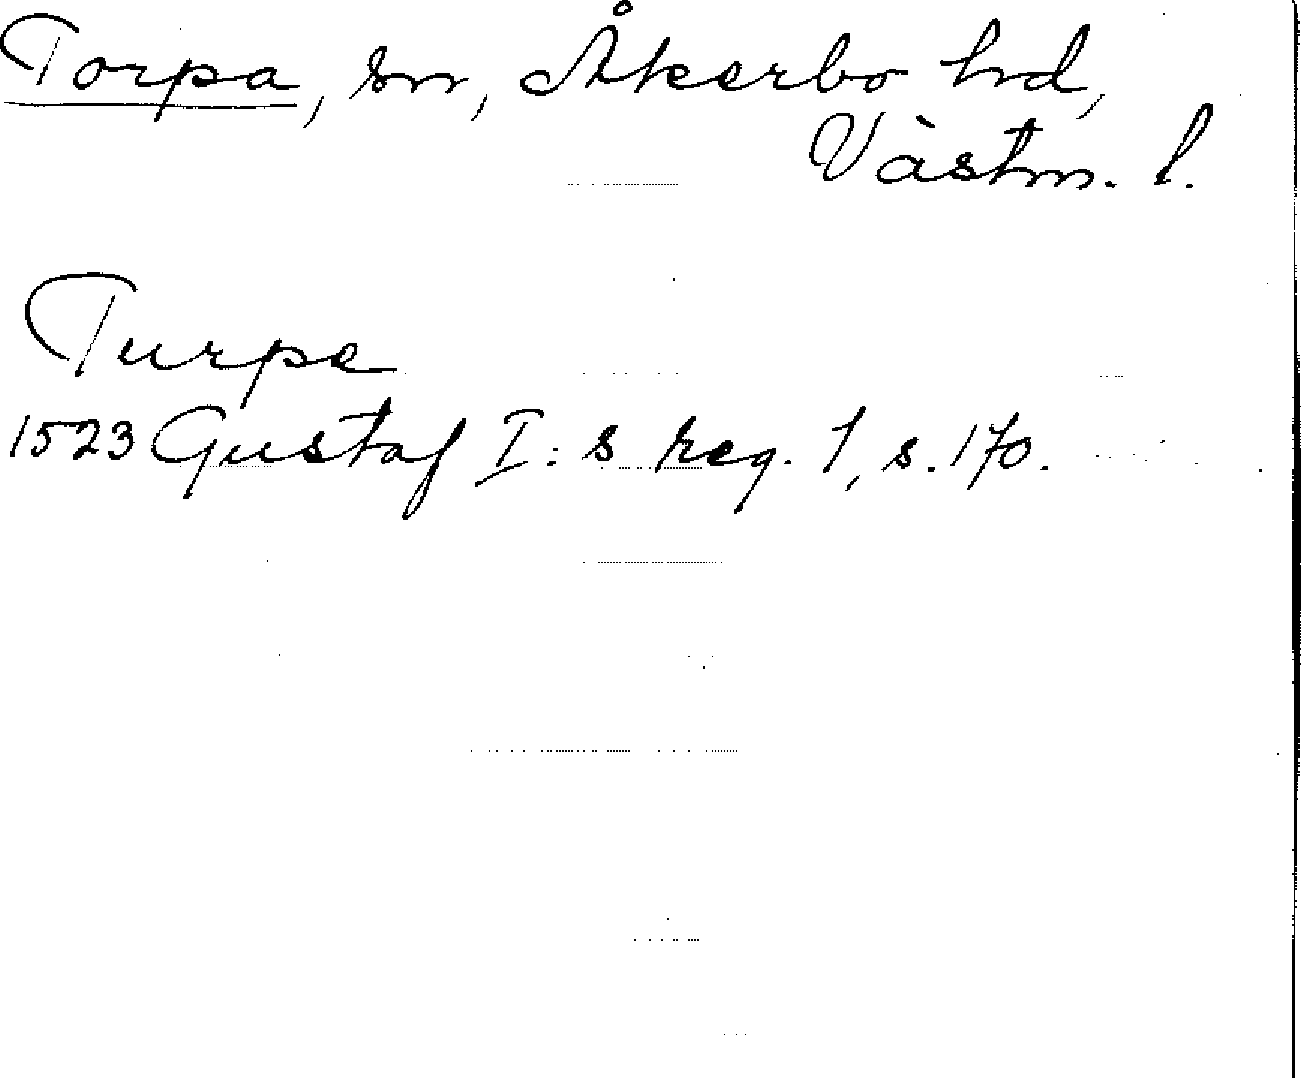 Torpa, sn, Åkerbo hd,
Västm. l.
Turpe
1523 Gustaf I:s reg. 1, s. 170.